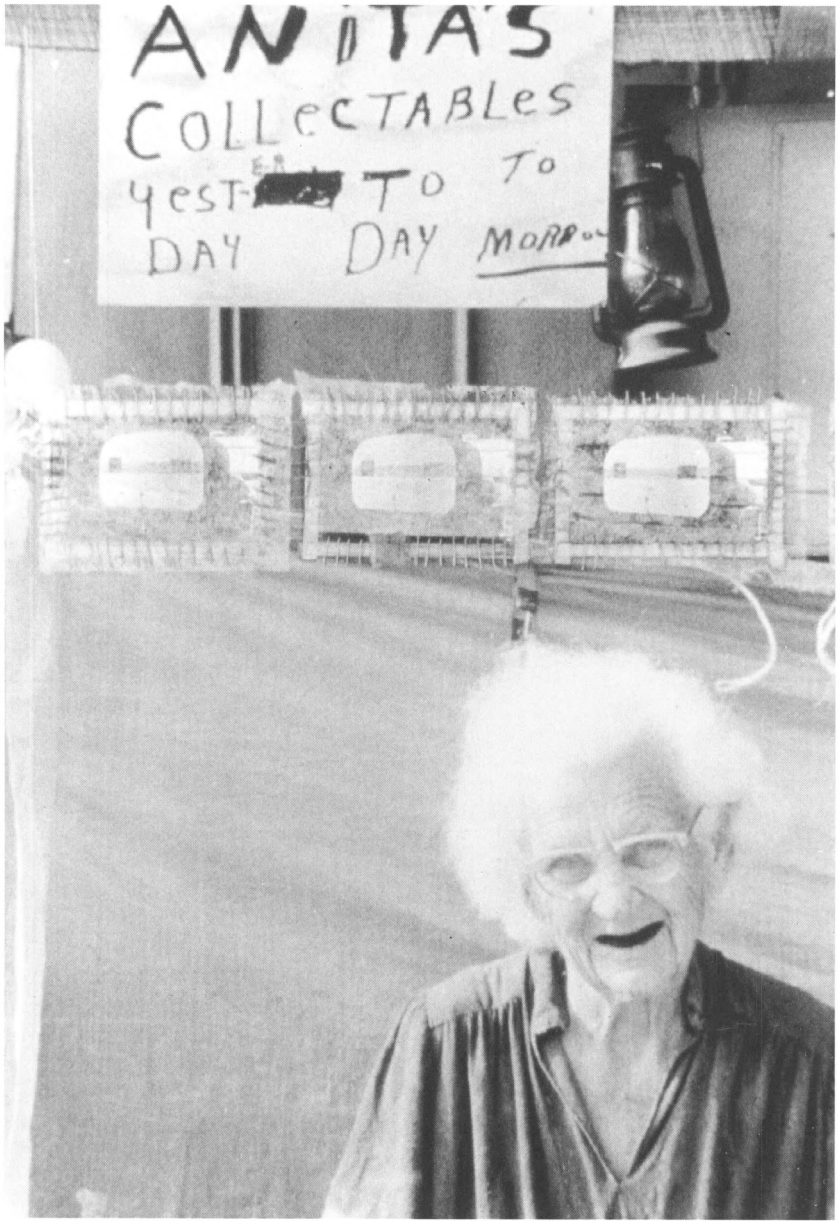 ANiTA'S
COLLeCTABLes
E-R
yesT- To To
DAY DAY MORROW